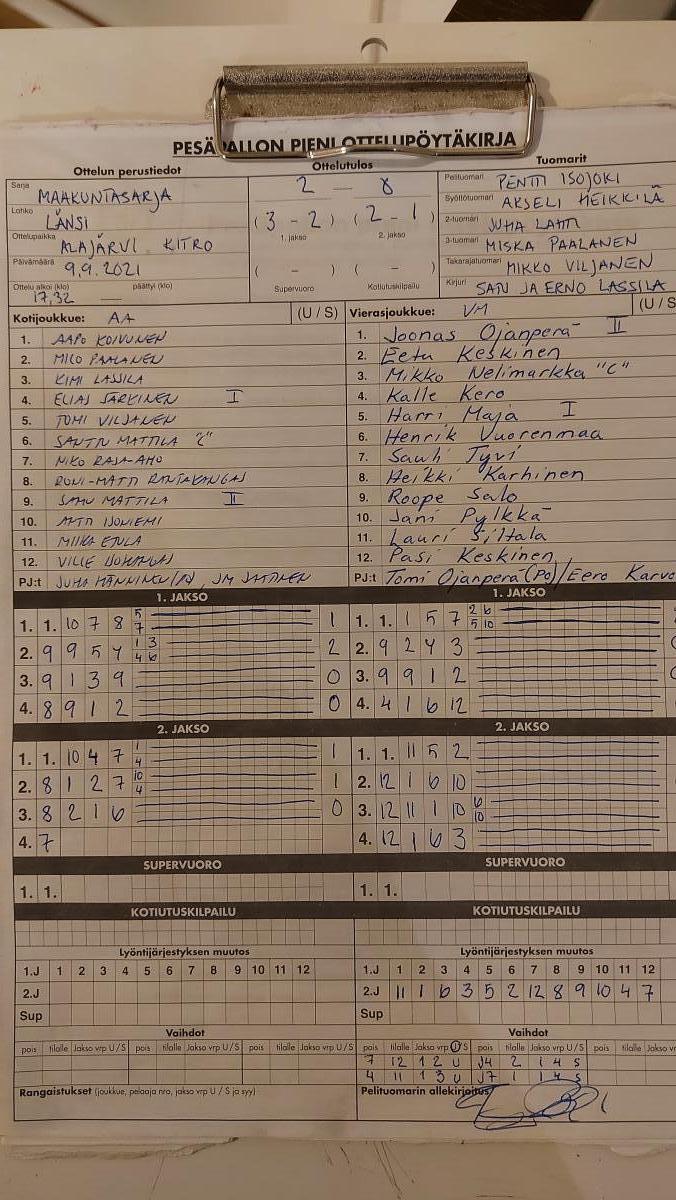 PESÄPALLON PIENI OTTELUPÖYTÄKIRJA
Ottelun perustiedot
Sarja MAAKUNTASARJA
Lohko LÄNSI
Ottelupaikka ALAJÄRVI KITRO
Päivämäärä 9.9.2021
Ottelu alkoi (klo) päättyi (klo)
17,32 —
Ottelutulos
2 — 0
(3 - 2) (2 - 1)
1. jakso 2. jakso
( - ) ( - )
Supervuoro Kotiutuskilpailu
Tuomarit
Pelituomari PENTTI ISOJOKI
Syöttötuomari AKSELI HEIKKILÄ
2-tuomari JUHA LAHTI
3-tuomari MISKA PAALANEN
Takarajatuomari MIKKO VILJANEN
Kirjuri SATU JA ERNO LASSILA
Kotijoukkue: AA (U / S)
1. AAPO KOIVUNEN
2. MICO PAALANEN
3. KIMI LASSILA
4. ELIAS SÄRKINEN I
5. TOMI VILJANEN
6. SANTTU MATTILA "C"
7. NIKO RAJA-AHO
8. RONI-MATTI RANTAKANGAS
9. SAMU MATTILA II
10. ANTTI ISONIEMI
11. MIIKA ETULA
12. VILLE
PJ:t JUHA HÄNNINEN (PJ), JM
Vierasjoukkue: VM (U / S
1. Joonas Ojanperä II
2. Eetu Keskinen
3. Mikko Nelimarkka "C"
4. Kalle Kero
5. Harri Maja I
6. Henrik Vuorenmaa
7. Sauli Tyvi
8. Heikki Karhinen
9. Roope Salo
10. Jani Pylkkä
11. Lauri Siltala
12. Pasi Keskinen
PJ:t Tomi Ojanperä (PJ) / Eero Karvo
1. JAKSO
1. 1. 10 7 8 5 7 1
2. 9 9 5 4 1 3 4 6 2
3. 9 1 3 9 0
4. 8 9 1 2 0
1. JAKSO
1. 1. 1 5 7 2 6 5 10
2. 9 2 4 3
3. 9 9 1 2
4. 4 1 6 12
2. JAKSO
1. 1. 10 4 7 1 4 1
2. 8 1 2 7 10 4 1
3. 8 2 1 6 0
4. 7
2. JAKSO
1. 1. 11 5 2
2. 12 1 6 10
3. 12 11 1 10 6 10
4. 12 1 6 3
SUPERVUORO
1. 1.
SUPERVUORO
1. 1.
KOTIUTUSKILPAILU
KOTIUTUSKILPAILU
Lyöntijärjestyksen muutos
1.J 1 2 3 4 5 6 7 8 9 10 11 12
2.J
Sup
Lyöntijärjestyksen muutos
1.J 1 2 3 4 5 6 7 8 9 10 11 12
2.J 11 1 6 3 5 2 12 8 9 10 4 7
Sup
Vaihdot
pois tilalle Jakso vrp U / S pois tilalle Jakso vrp U / S pois tilalle Jakso vrp U / S
Vaihdot
pois tilalle Jakso vrp U / S pois tilalle Jakso vrp U / S pois tilalle Jakso vr
7 12 1 2 U J4 2 1 4 S
4 11 1 3 U J7 1 1 4 S
Rangaistukset (joukkue, pelaaja nro, jakso vrp U / S ja syy)
Pelituomarin allekirjoitus